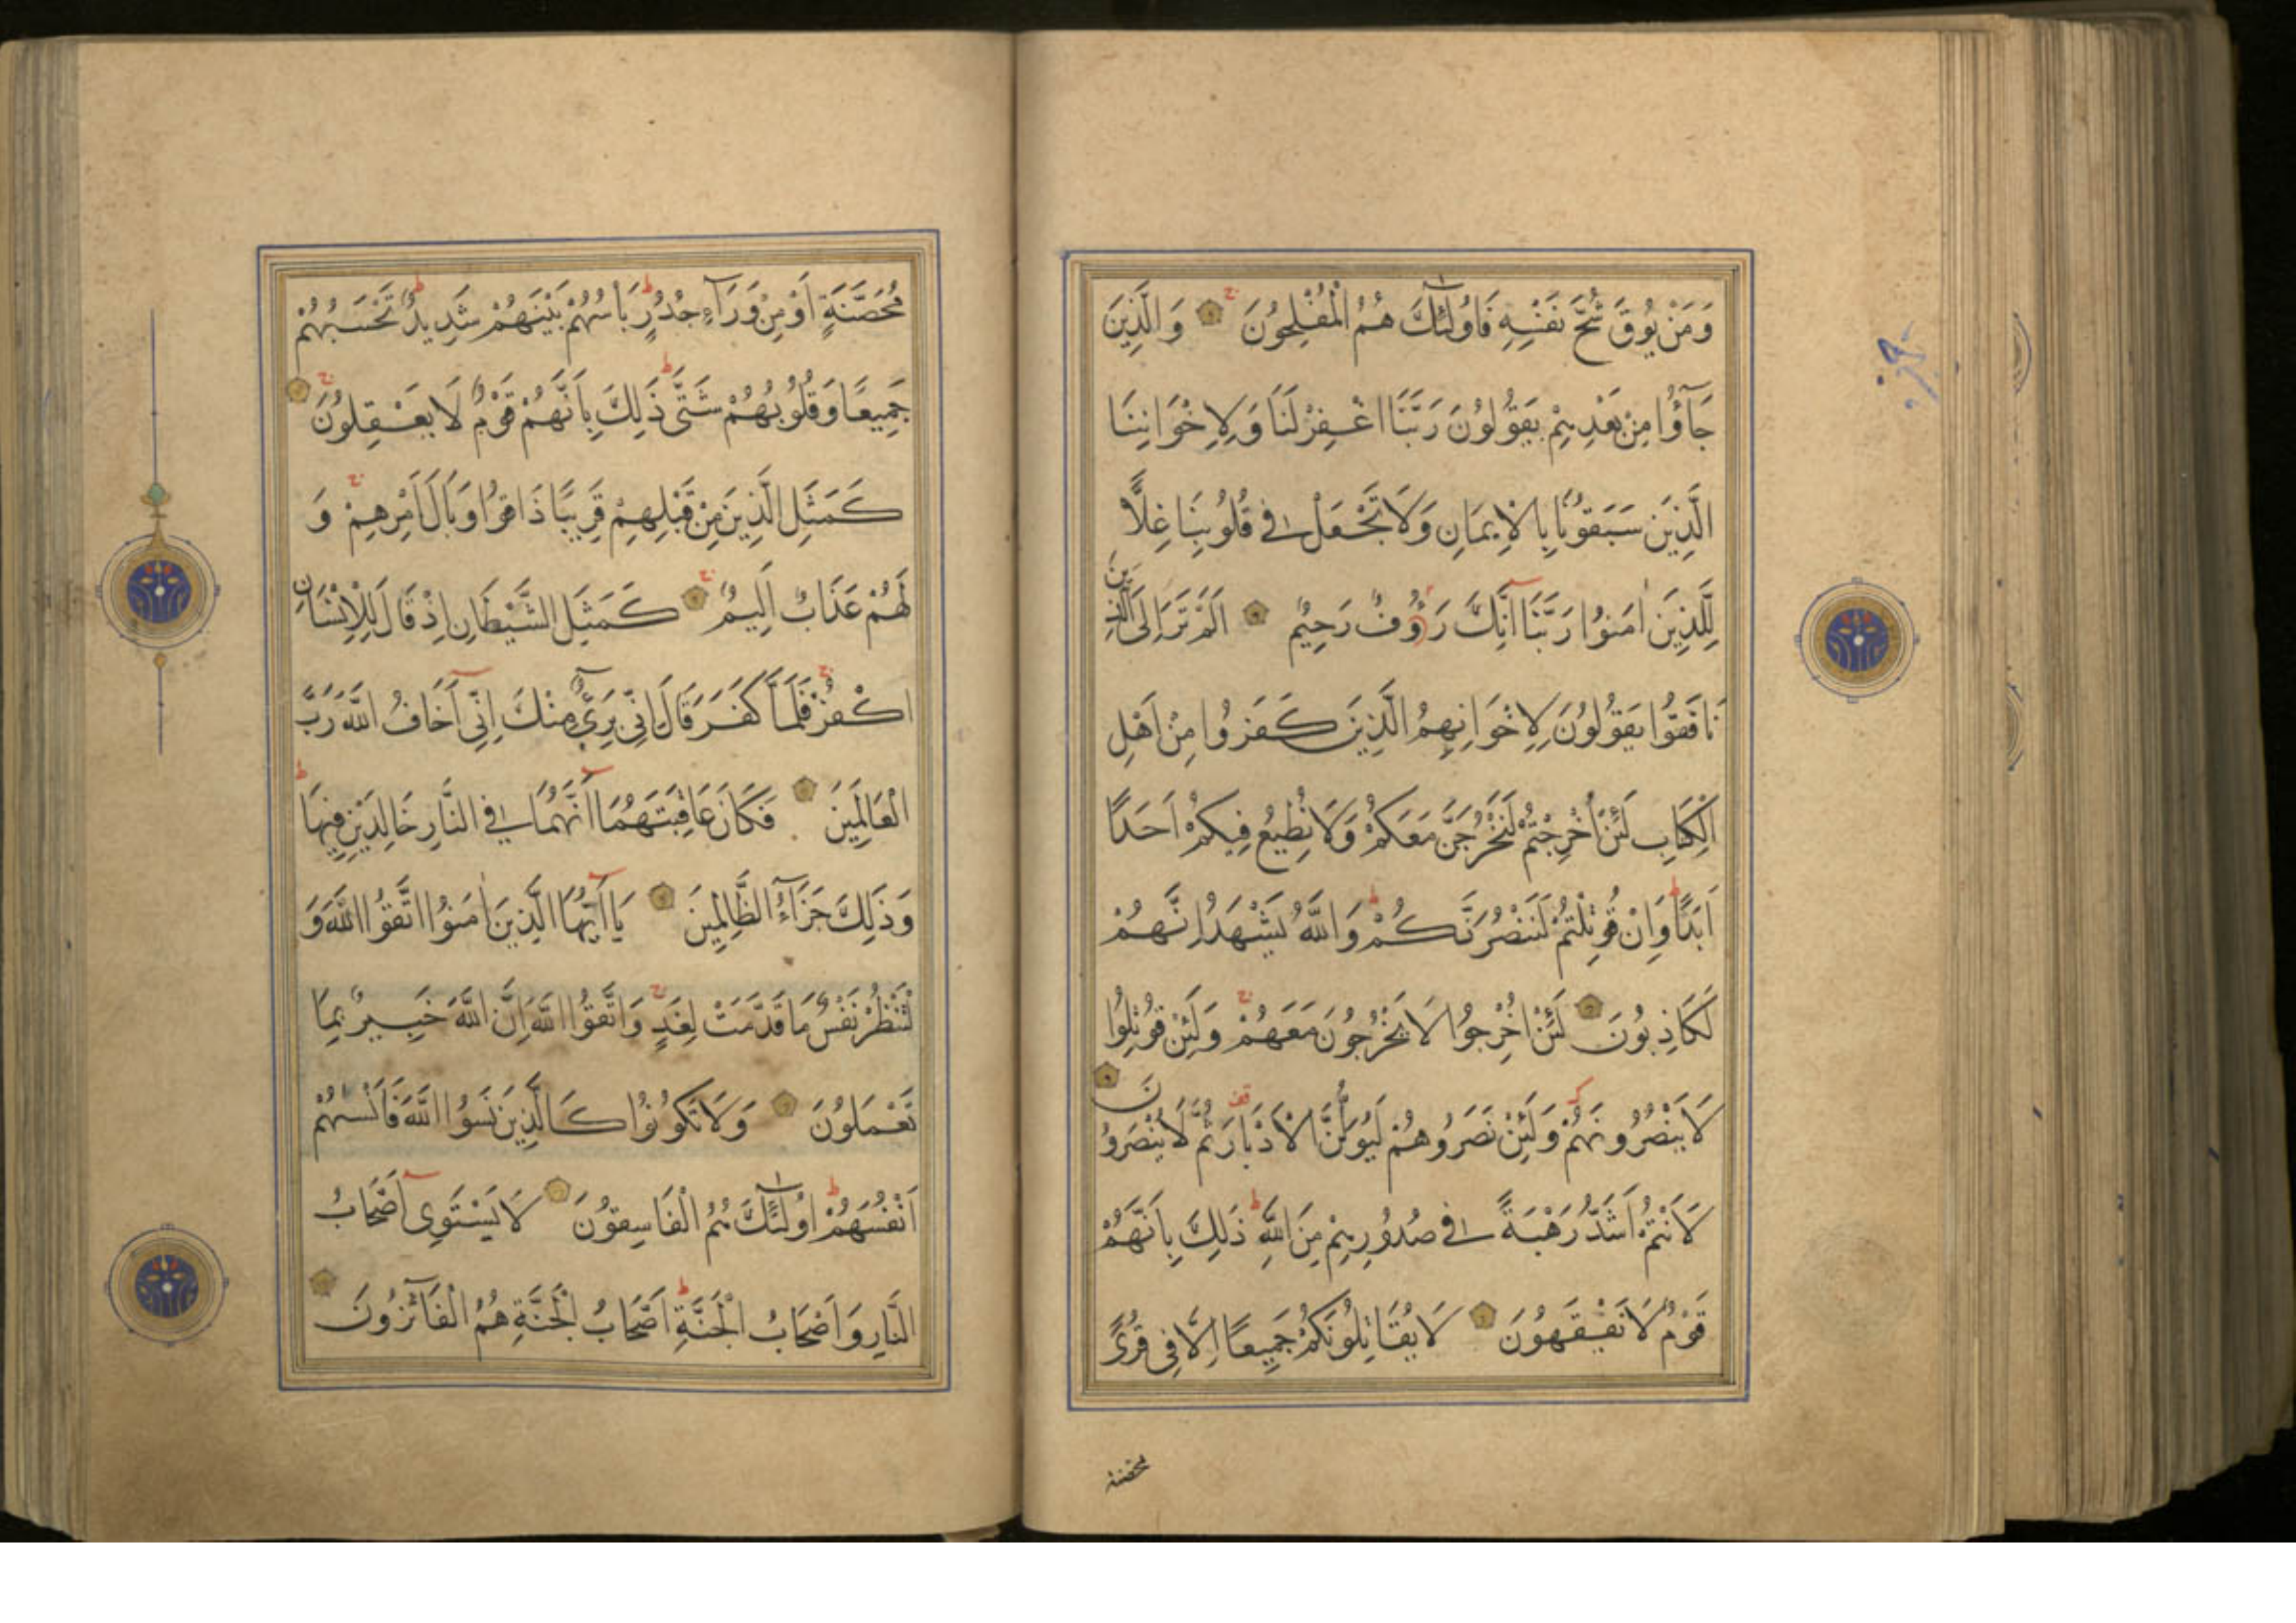 وَمَنْ يُوقَ شُحَّ نَفْسِهِ فَاُولٰئِكَ هُمُ الْمُفْلِحُونَ وَالَّذِينَ
جَآؤُا مِنْ بَعْدِهِمْ يَقُولُونَ رَبَّنَا اغْفِرْ لَنَا وَلِاِخْوَانِنَا
الَّذِينَ سَبَقُونَا بِالْاِيمَانِ وَلَا تَجْعَلْ فِى قُلُوبِنَا غِلًّا
لِلَّذِينَ اٰمَنُوا رَبَّنَآ اِنَّكَ رَؤُفٌ رَحِيمٌ اَلَمْ تَرَ اِلَى الَّذِينَ
نَافَقُوا يَقُولُونَ لِاِخْوَانِهِمُ الَّذِينَ كَفَرُوا مِنْ اَهْلِ
الْكِتَابِ لَئِنْ اُخْرِجْتُمْ لَنَخْرُجَنَّ مَعَكُمْ وَلَا نُطِيعُ فِيكُمْ اَحَدًا
اَبَدًا وَاِنْ قُوتِلْتُمْ لَنَنْصُرَنَّكُمْ وَاللّٰهُ يَشْهَدُ اِنَّهُمْ
لَكَاذِبُونَ لَئِنْ اُخْرِجُوا لَا يَخْرُجُونَ مَعَهُمْ وَلَئِنْ قُوتِلُوا
لَا يَنْصُرُونَهُمْ وَلَئِنْ نَصَرُوهُمْ لَيُوَلُّنَّ الْاَدْبَارَ ثُمَّ لَا يُنْصَرُونَ
لَاَنْتُمْ اَشَدُّ رَهْبَةً فِى صُدُورِهِمْ مِنَ اللّٰهِ ذَلِكَ بِاَنَّهُمْ
قَوْمٌ لَا يَفْقَهُونَ لَا يُقَاتِلُونَكُمْ جَمِيعًا اِلَّا فِى قُرًى
محصنة
مُحَصَّنَةٍ اَوْ مِنْ وَرَآءِ جُدُرٍ بَاْسُهُمْ بَيْنَهُمْ شَدِيدٌ تَحْسَبُهُمْ
جَمِيعًا وَقُلُوبُهُمْ شَتَّى ذَلِكَ بِاَنَّهُمْ قَوْمٌ لَا يَعْقِلُونَ
كَمَثَلِ الَّذِينَ مِنْ قَبْلِهِمْ قَرِيبًا ذَاقُوا وَبَالَ اَمْرِهِمْ وَ
لَهُمْ عَذَابٌ اَلِيمٌ كَمَثَلِ الشَّيْطَانِ اِذْ قَالَ لِلْاِنْسَانِ
اكْفُرْ فَلَمَّا كَفَرَ قَالَ اِنِّى بَرِىٓءٌ مِنْكَ اِنِّىٓ اَخَافُ اللّٰهَ رَبَّ
الْعَالَمِينَ فَكَانَ عَاقِبَتَهُمَآ اَنَّهُمَا فِى النَّارِ خَالِدَيْنِ فِيهَا
وَذَلِكَ جَزَآءُ الظَّالِمِينَ يَآ اَيُّهَا الَّذِينَ اٰمَنُوا اتَّقُوا اللّٰهَ وَ
لْتَنْظُرْ نَفْسٌ مَا قَدَّمَتْ لِغَدٍ وَاتَّقُوا اللّٰهَ اِنَّ اللّٰهَ خَبِيرٌ بِمَا
تَعْمَلُونَ وَلَا تَكُونُوا كَالَّذِينَ نَسُوا اللّٰهَ فَاَنْسٰىهُمْ
اَنْفُسَهُمْ اُولٰئِكَ هُمُ الْفَاسِقُونَ لَا يَسْتَوِىٓ اَصْحَابُ
النَّارِ وَاَصْحَابُ الْجَنَّةِ اَصْحَابُ الْجَنَّةِ هُمُ الْفَآئِزُونَ